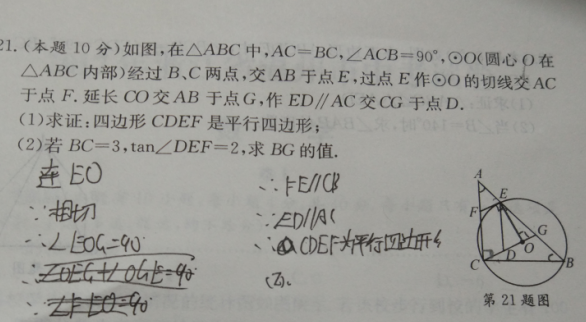 21.(本题 10 分)如图,在△ABC 中,AC=BC,∠ACB=90°,⊙O(圆心 O 在
△ABC 内部)经过 B、C 两点,交 AB 于点 E,过点 E 作⊙O 的切线交 AC
于点 F. 延长 CO 交 AB 于点 G,作 ED∥AC 交 CG 于点 D.
(1)求证:四边形 CDEF 是平行四边形;
(2)若 BC=3,tan∠DEF=2,求 BG 的值.
连 EO
∵相切
∴∠EOG=90°
∠OEG+∠OGE=90°
∴∠FEO=90°
∴FE//CG
∵ED//AC
∴CDEF为平行四边形
(2).
A
E
F
G
O
C
D
B
第 21 题图